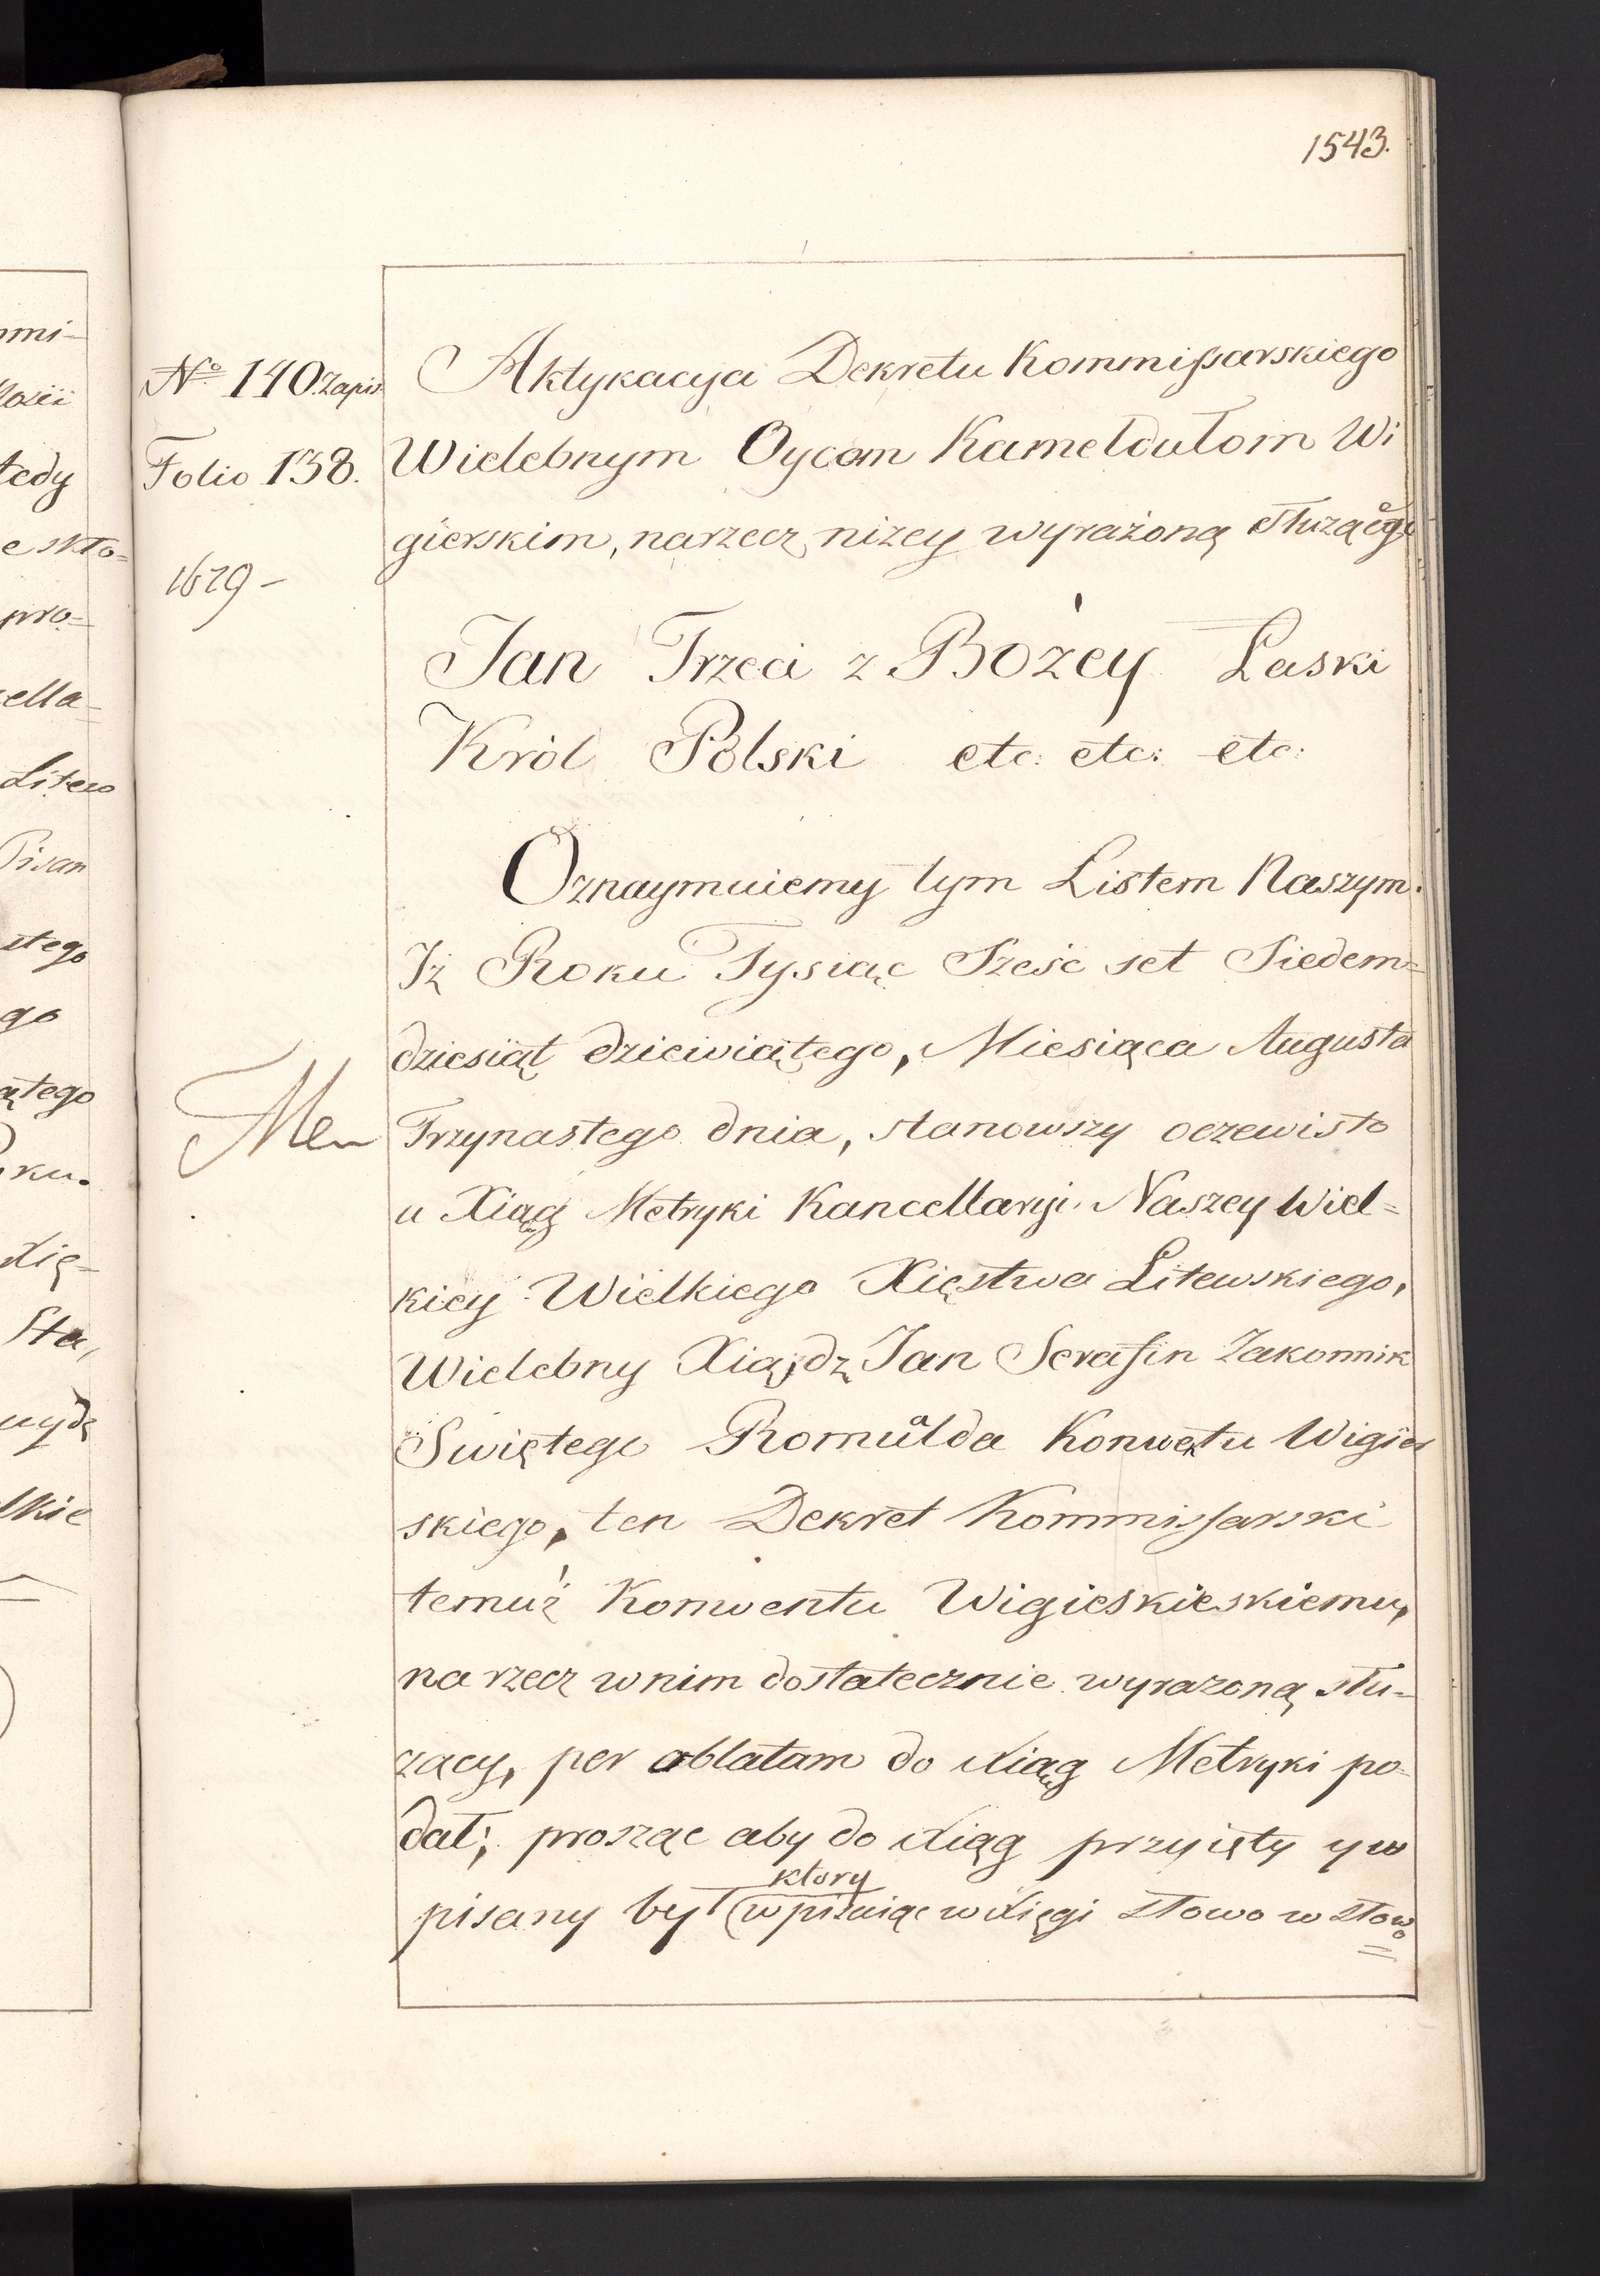 1543.
nmi-
łosii
tedy
e sło=
pro=
cella=
Litew
Pisan
stego
go
ątego
ku.
Xię-
Sta,
uydz
lkie
No 140. Zapis
Folio 138.
1679 -
Aktykacya Dekretu Kommissarskiego
Wielebnym Oycom Kameldułom Wi
gierskim, narzecz niżey wyrażoną służącego
Jan Trzeci z Bożey Łaski
Król Polski etc: etc: etc:
Oznaymuiemy tym Listem Naszym.
Iż Roku Tysiąc Sześć set Siedem=
dziesiąt dziewiątego, Miesiąca Augusta
Trzynastego dnia, stanowszy oczewisto
u Xiąg Metryki Kancellaryi Naszey Wiel=
kiey Wielkiego Xięstwa Litewskiego,
Wielebny Xiąjdz Jan Serafin Zakonnik
Swiętego Romualda Konwentu Wigier
skiego, ten Dekret Kommissarski
temuż Konwentu Wigieskieskiemu,
na rzecz w nim dostatecznie wyrażoną słu-
żący, per oblatam do Xiąg Metryki po-
dał; prosząc aby do Xiąg przyięty y w
pisany był (który wpisuiąc w Xięgi słowo w słowo